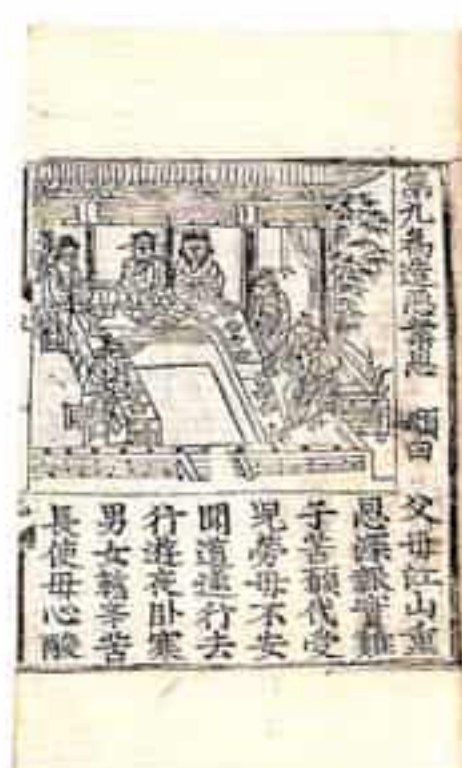 第九為造惡業恩 頌曰
父母江山重
恩深報實難
子苦願代受
兒勞母不安
聞道遠行去
行遊夜卧寒
男女暫辛苦
長使母心酸